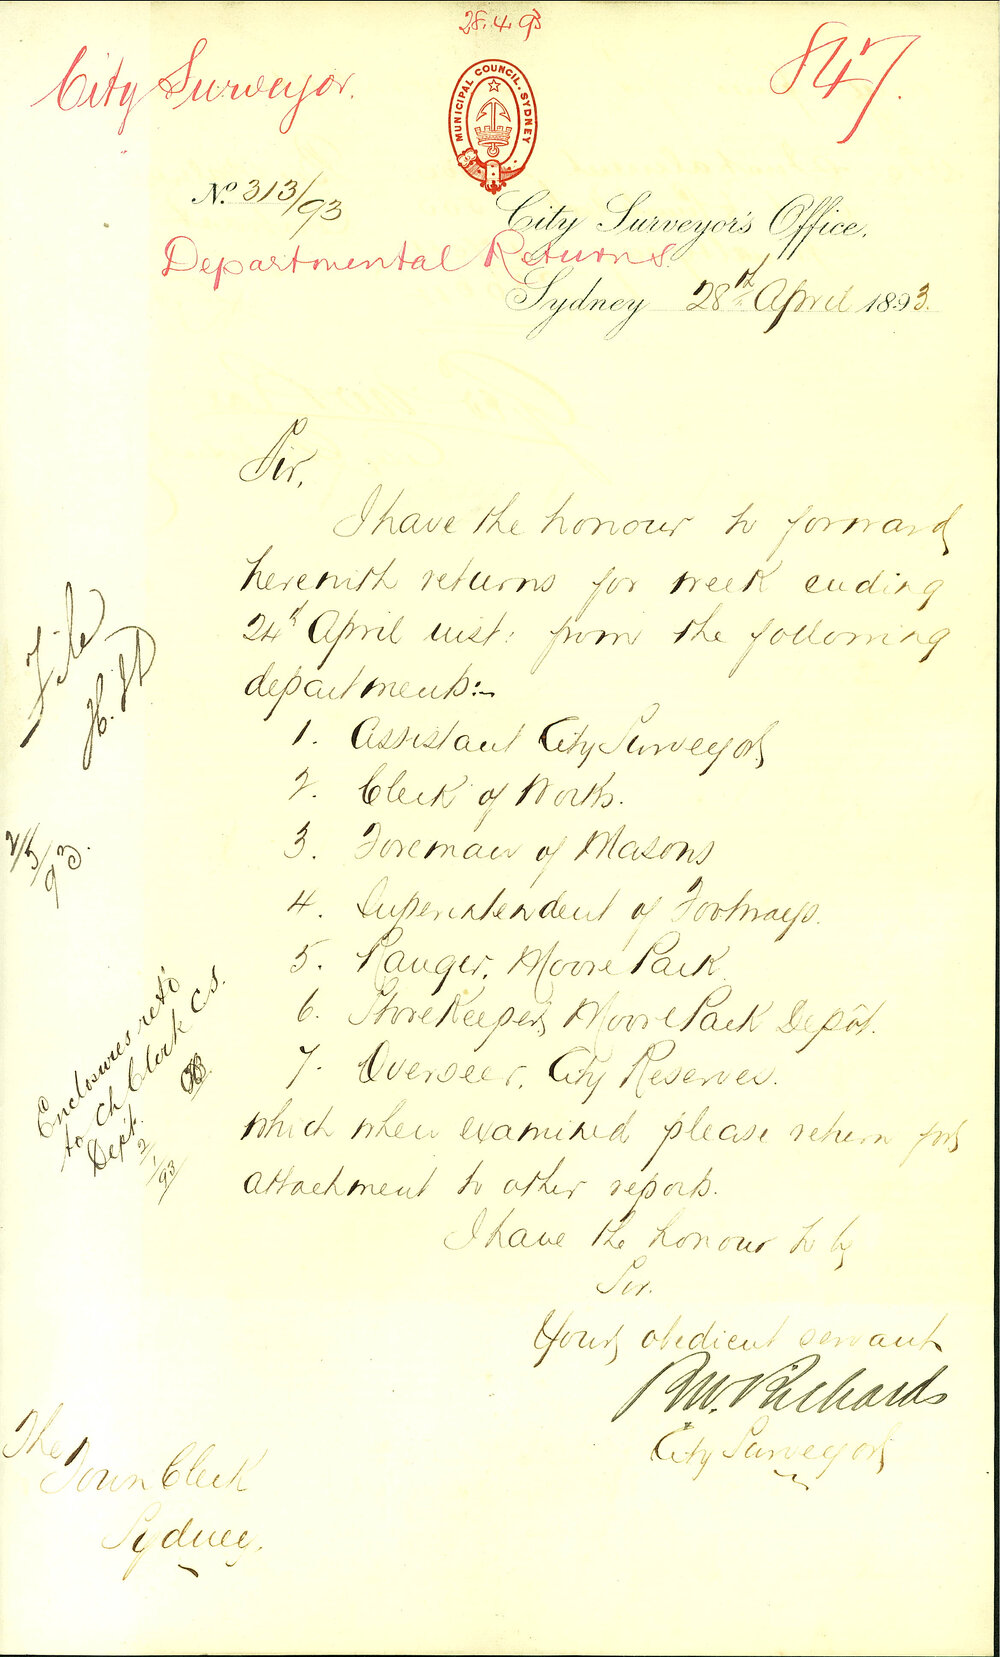 28.4.93
City Surveyor.
847.
MUNICIPAL COUNCIL. SYDNEY
No. 313/93
City Surveyor's Office,
Departmental Returns
Sydney 28th April 1893.
Sir,
I have the honour to forward
herewith returns for week ending
24th April inst: from the following
departments:-
1. Assistant City Surveyor
2. Clerk of Works.
3. Foreman of Masons
4. Superintendent of Footways.
5. Ranger, Moore Park
6. Storekeeper, Moore Park Depôt.
7. Overseer, City Reserves.
which when examined please return for
attachment to other reports.
I have the honour to be
Sir.
Your obedient servant
R.W. Richards
City Surveyor
The
Town Clerk
Sydney.
File
2/5/93.
Enclosures ret'd
to Ch Clerk CS.
Dept.